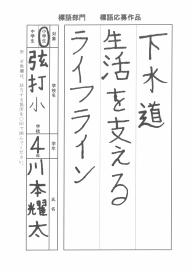 標語部門　標語応募作品
下水道
生活を支える
ライフライン
対象
小学生
中学生
学校名
弦打小
学校
学年
4年
氏名
川本耀太